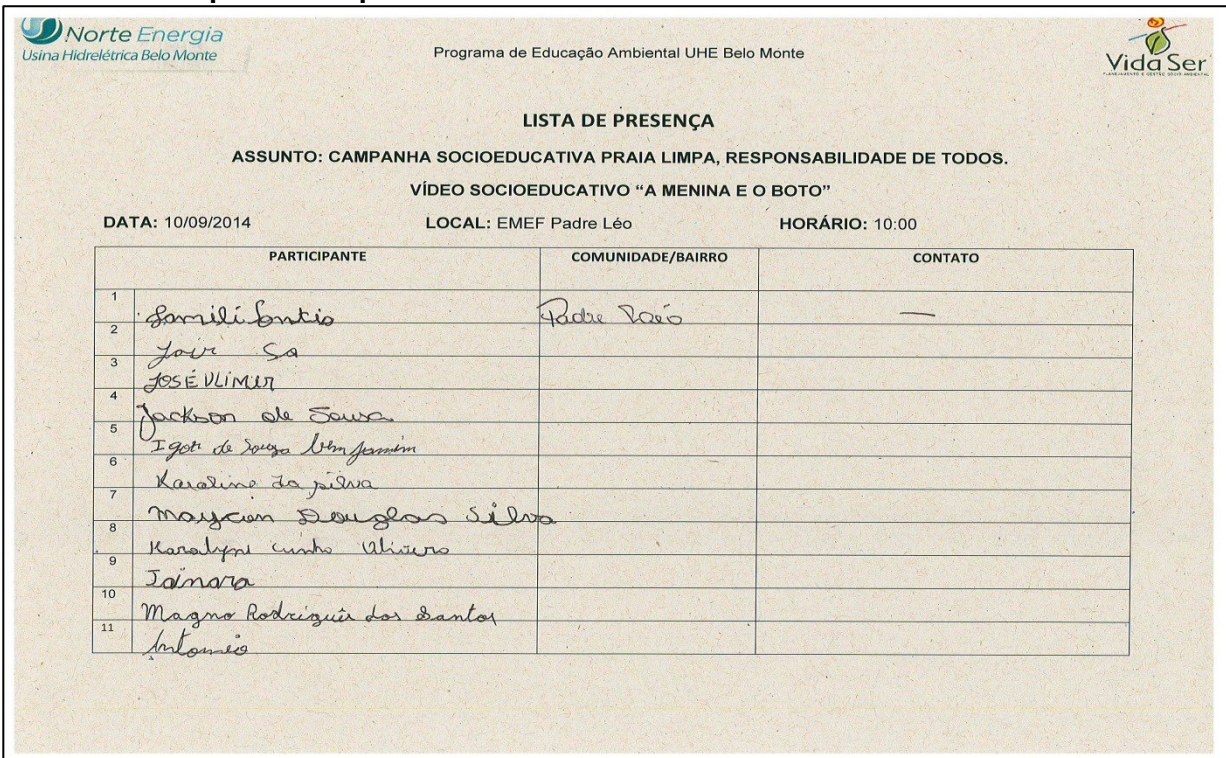 Norte Energia
Usina Hidrelétrica Belo Monte
Programa de Educação Ambiental UHE Belo Monte
Vida Ser
LISTA DE PRESENÇA
ASSUNTO: CAMPANHA SOCIOEDUCATIVA PRAIA LIMPA, RESPONSABILIDADE DE TODOS.
VÍDEO SOCIOEDUCATIVO “A MENINA E O BOTO”
DATA: 10/09/2014 LOCAL: EMEF Padre Léo HORÁRIO: 10:00
PARTICIPANTE COMUNIDADE/BAIRRO CONTATO
1 Padre —
2 Jair Sa
3 JOSÉ
4 Jackson de Sousa
5 Igor de Souza
6 Karoline da silva
7 Maycon Douglas Silva
8 Karolyne cunha
9 Tainara
10 Magno Rodriguis dos Santos
11 Antonio